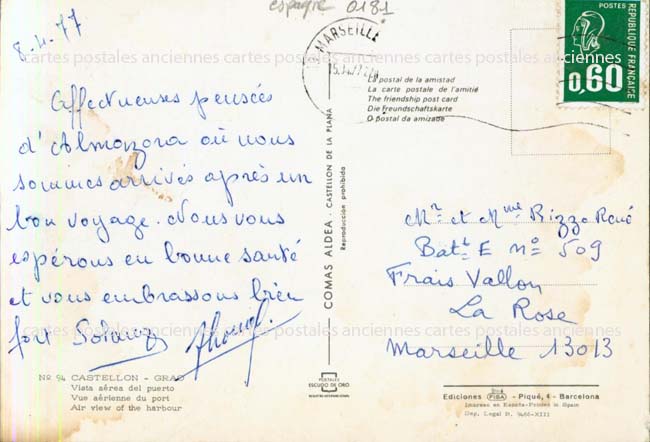 espagne 0181
8-4-77
Affectueuses pensées
d'Almazora où nous
sommes arrivés après un
bon voyage. Nous vous
espérons en bonne santé
et vous embrassons bien
fort
Nº 94 CASTELLON - GRAO
Vista aérea del puerto
Vue aérienne du port
Air view of the harbour
COMAS ALDEA - CASTELLON DE LA PLANA
Reproducción prohibida
POSTALES
ESCUDO DE ORO
MARSEILLE
La postal de la amistad
La carte postale de l'amitié
The friendship post card
Die Freundschaftskarte
O postal da amizade
POSTES
REPUBLIQUE FRANÇAISE
0,60
Mr et Mme Rizzo René
Bat E nº 509
Frais Vallon
La Rose
Marseille 13013
Ediciones FISA - Piqué, 4 - Barcelona
Impreso en España-Printed in Spain
Dep. Legal B. 9466-XIII
cartes postales anciennes cartes postales anciennes cartes postales anciennes
cartes postales anciennes cartes postales anciennes cartes postales anciennes